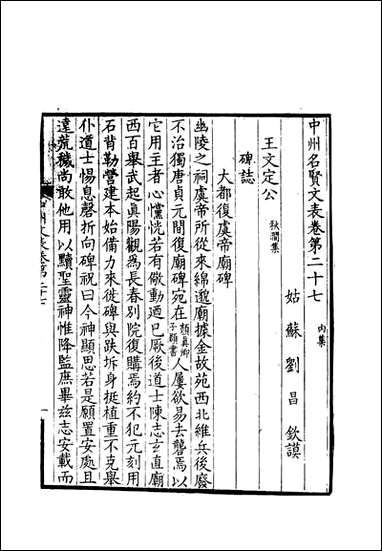 中州名賢文表卷第二十七 內集
姑蘇劉昌欽謨
王文定公 秋澗集
碑誌
大都復虞帝廟碑
幽陵之祠虞帝所從來綿邈廟據金故苑西北維兵後廢
不治獨唐貞元間復廟碑宛在 顏真卿子頵書 人屢欲易去礱焉以
它用主者心懬恍若有欹動迺已厥後道士陳志玄直廟
西百舉武起真陽觀為長春別院復購焉約不犯元刻用
石背勒營建本始備力來徙碑與趺坼身挺植重不克舉
仆道士惕息磬折向碑祝曰今神顯思若是願置安處且
遠荒穢尚敢他用以黷聖靈神惟降監庶畢兹志安載而